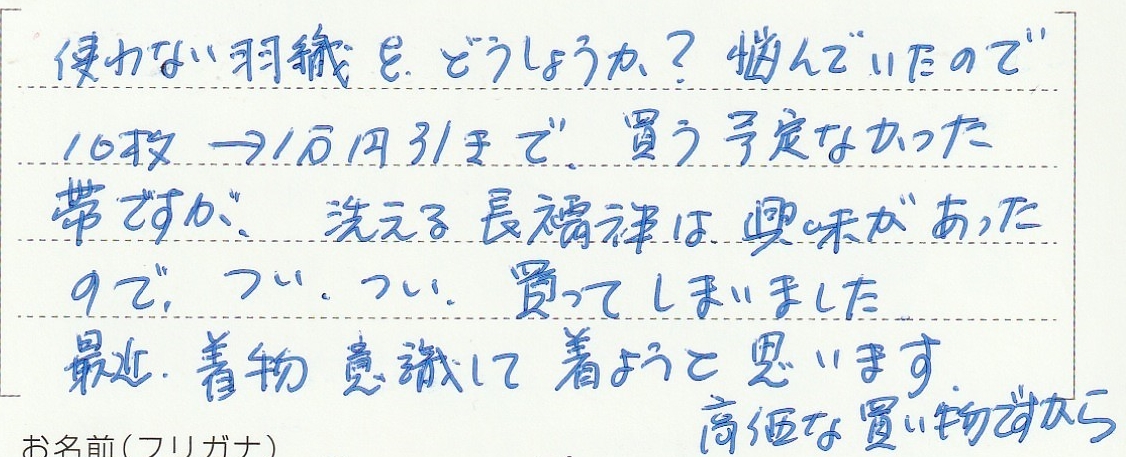 使わない羽織を、どうしょうか？悩んでいたので
10枚→1万円引きまで、買う予定なかった
帯ですが、洗える長襦袢は興味があった
ので、つい、つい、買ってしまいました
最近、着物意識して着ようと思います。
高価な買い物ですから
お名前(フリガナ)